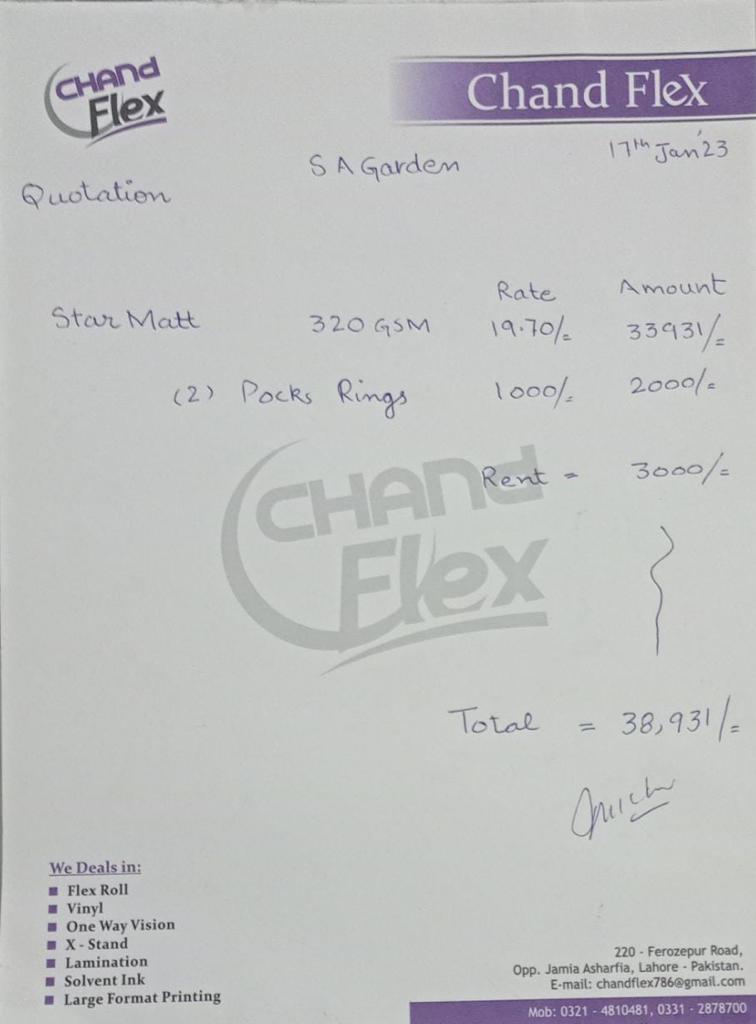 CHAND
Flex
Chand Flex
17th Jan'23
S A Garden
Quotation
Rate Amount
Star Matt 320 GSM 19.70/= 33931/=
(2) Packs Rings 1000/= 2000/=
Rent = 3000/=
CHAND
Flex
Total = 38,931/=
We Deals in:
Flex Roll
Vinyl
One Way Vision
X - Stand
Lamination
Solvent Ink
Large Format Printing
220 - Ferozepur Road,
Opp. Jamia Asharfia, Lahore - Pakistan.
E-mail: chandflex786@gmail.com
Mob: 0321 - 4810481, 0331 - 2878700